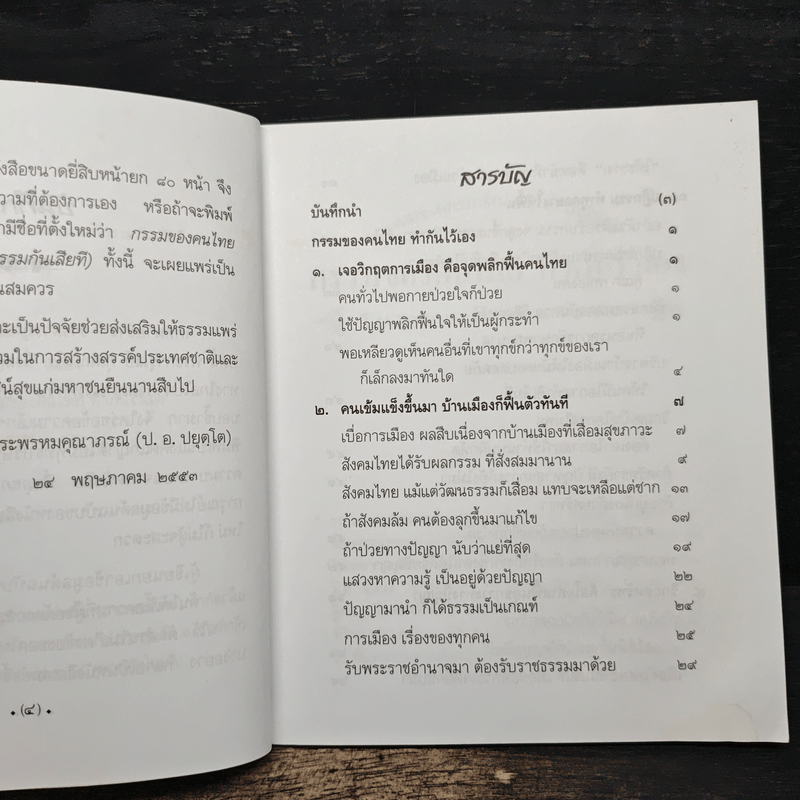 งสือขนาดยี่สิบหน้ายก ๘๐ หน้า จึง
วามที่ต้องการเอง หรือถ้าจะพิมพ์
ามีชื่อที่ตั้งใหม่ว่า กรรมของคนไทย
รรมกันเสียที) ทั้งนี้ จะเผยแพร่เป็น
นสมควร
ะเป็นปัจจัยช่วยส่งเสริมให้ธรรมแพร่
วมในการสร้างสรรค์ประเทศชาติและ
ชน์สุขแก่มหาชนยืนนานสืบไป
ระพรหมคุณาภรณ์ (ป. อ. ปยุตฺโต)
๒๔ พฤษภาคม ๒๕๕๓
• (๔) •
สารบัญ
บันทึกนำ (๓)
กรรมของคนไทย ทำกันไว้เอง ๑
๑. เจอวิกฤตการเมือง คือจุดพลิกฟื้นคนไทย ๑
คนทั่วไปพอกายป่วยใจก็ป่วย ๑
ใช้ปัญญาพลิกฟื้นใจให้เป็นผู้กระทำ ๑
พอเหลียวดูเห็นคนอื่นที่เขาทุกข์กว่าทุกข์ของเรา
ก็เล็กลงมาทันใด ๔
๒. คนเข้มแข็งขึ้นมา บ้านเมืองก็ฟื้นตัวทันที ๗
เบื่อการเมือง ผลสืบเนื่องจากบ้านเมืองที่เสื่อมสุขภาวะ ๗
สังคมไทยได้รับผลกรรม ที่สั่งสมมานาน ๙
สังคมไทย แม้แต่วัฒนธรรมก็เสื่อม แทบจะเหลือแต่ซาก ๑๓
ถ้าสังคมล้ม คนต้องลุกขึ้นมาแก้ไข ๑๗
ถ้าป่วยทางปัญญา นับว่าแย่ที่สุด ๑๙
แสวงหาความรู้ เป็นอยู่ด้วยปัญญา ๒๒
ปัญญามานำ ก็ได้ธรรมเป็นเกณฑ์ ๒๔
การเมือง เรื่องของทุกคน ๒๕
รับพระราชอำนาจมา ต้องรับราชธรรมมาด้วย ๒๙